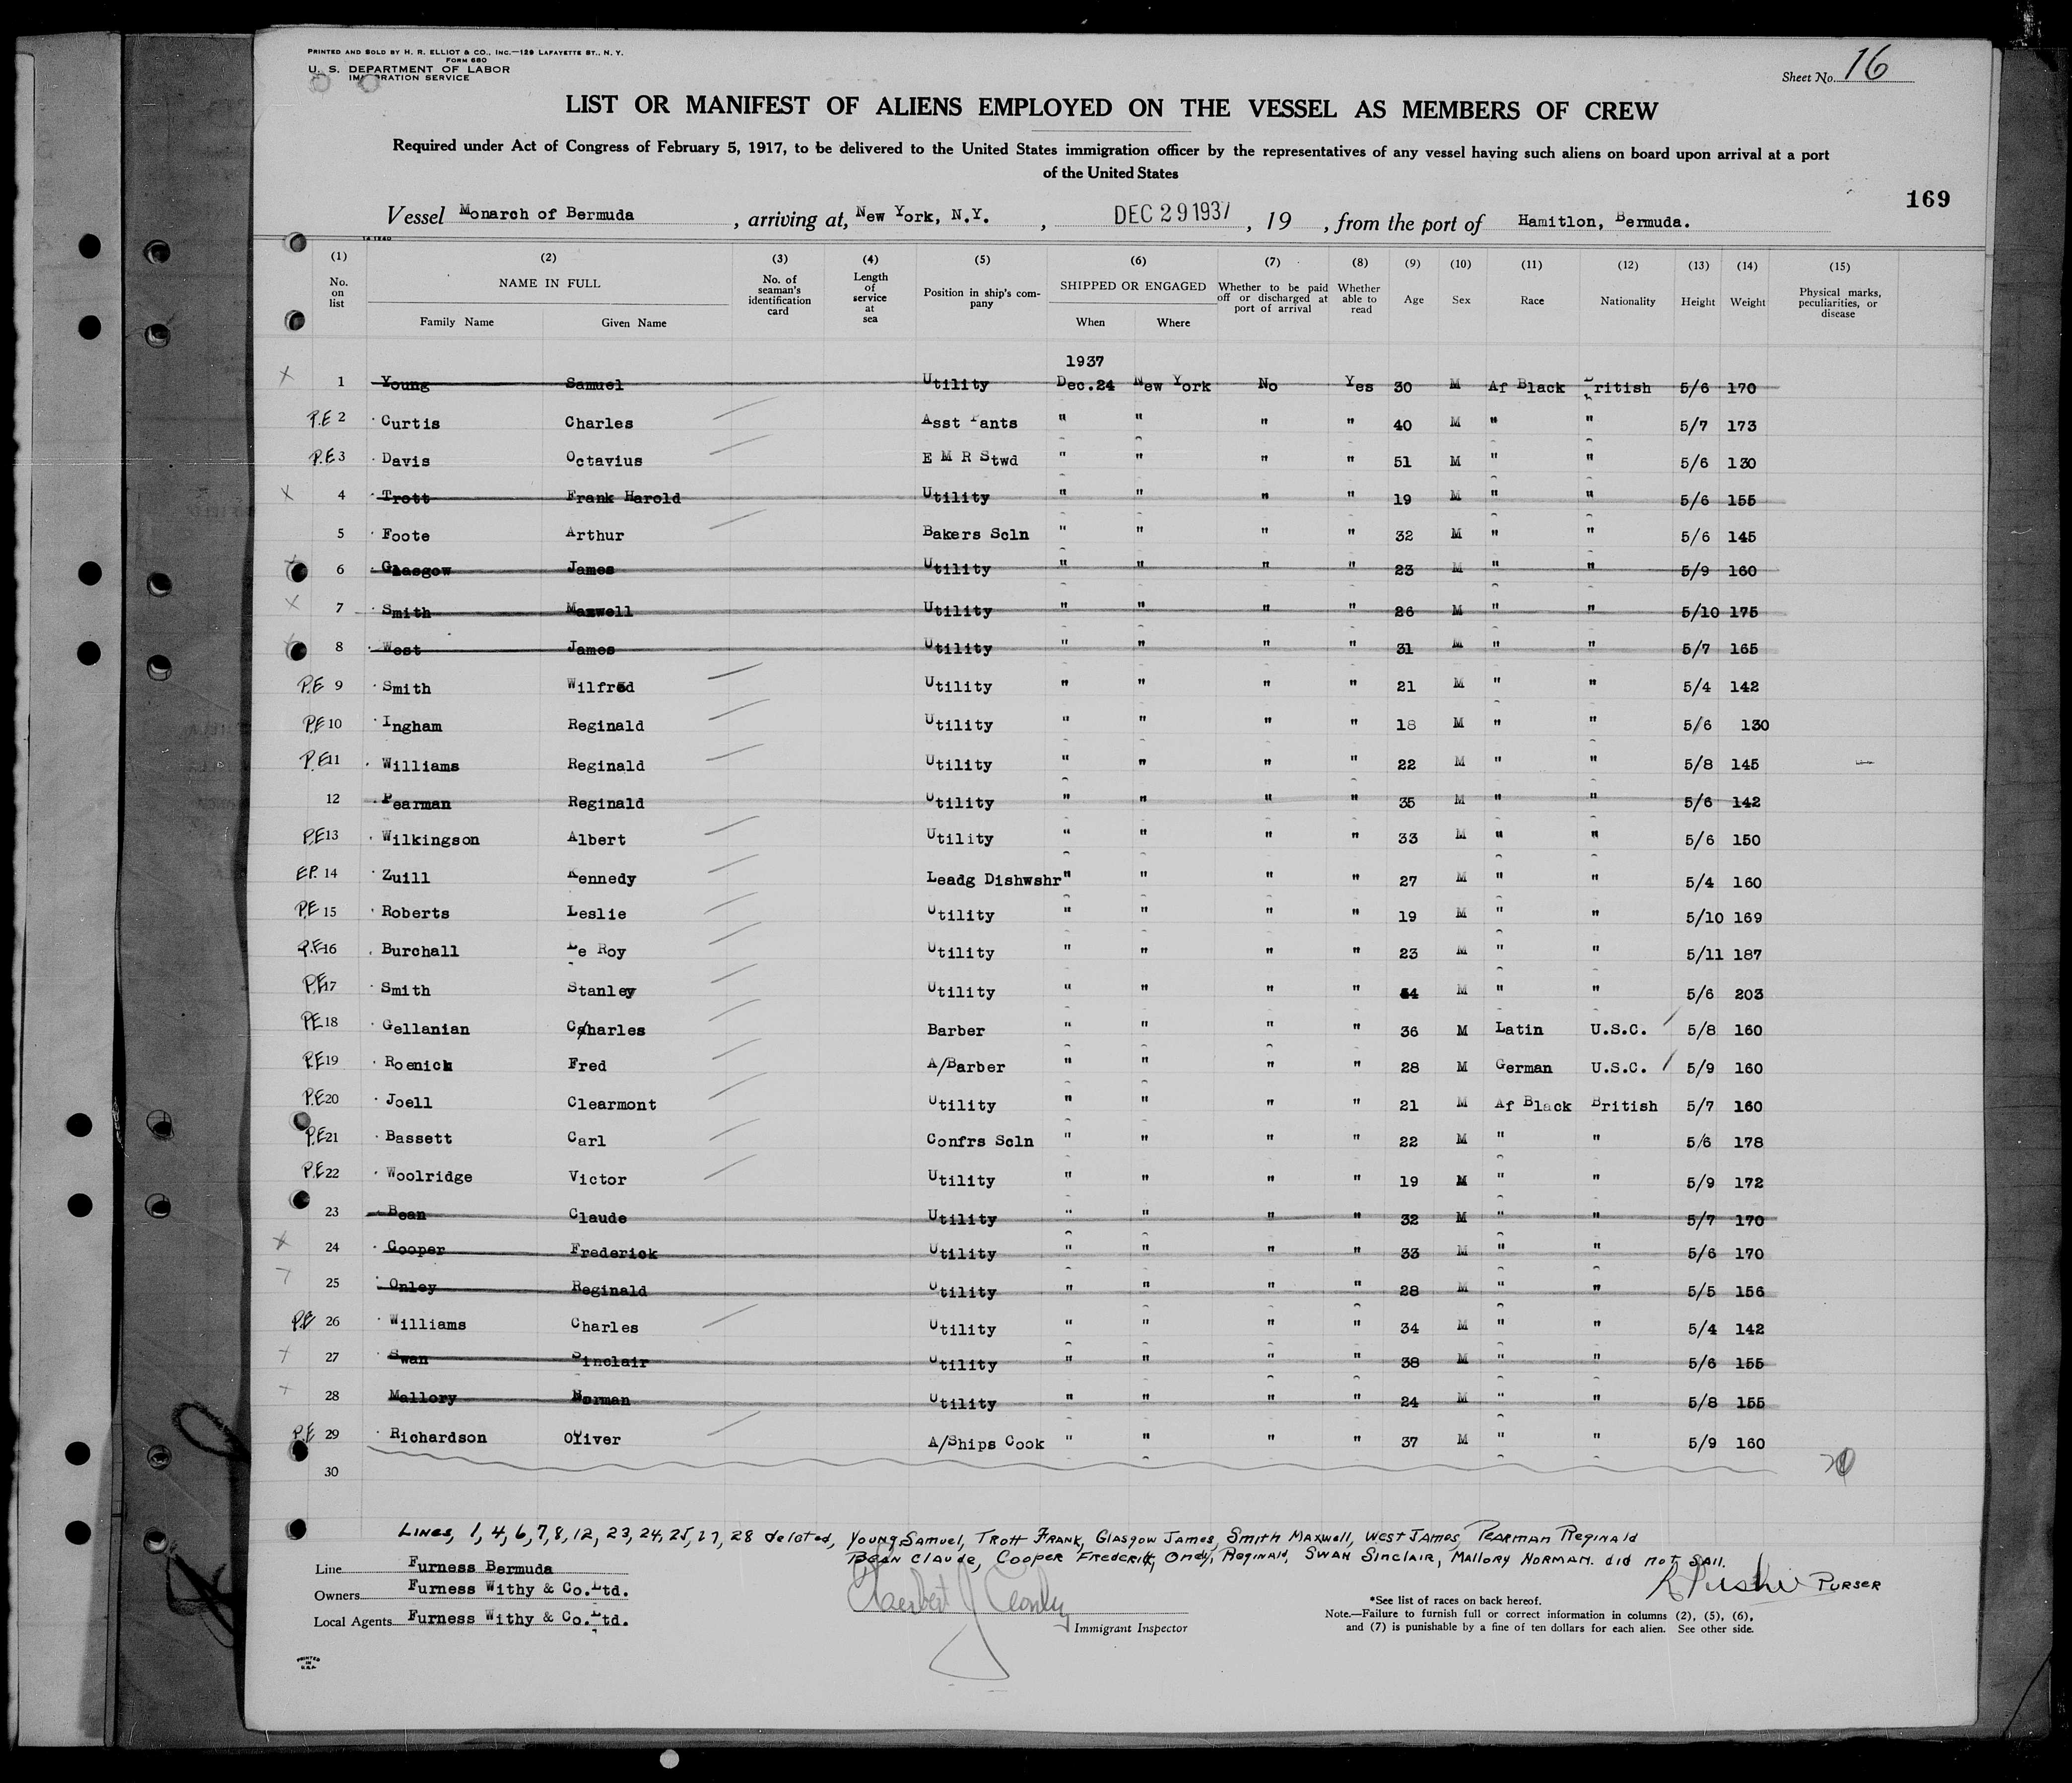 PRINTED AND SOLD BY H. R. ELLIOT & CO., INC.—129 LAFAYETTE ST., N. Y.
FORM 680
U. S. DEPARTMENT OF LABOR
IMMIGRATION SERVICE
Sheet No. 16
LIST OR MANIFEST OF ALIENS EMPLOYED ON THE VESSEL AS MEMBERS OF CREW
Required under Act of Congress of February 5, 1917, to be delivered to the United States immigration officer by the representatives of any vessel having such aliens on board upon arrival at a port
of the United States
169
Vessel Monarch of Bermuda , arriving at, New York, N.Y. , DEC 29 1937 , 19 , from the port of Hamitlon, Bermuda.
(1) (2) (3) (4) (5) (6) (7) (8) (9) (10) (11) (12) (13) (14) (15)
No. on list NAME IN FULL Family Name Given Name No. of seaman's identification card Length of service at sea Position in ship's company SHIPPED OR ENGAGED When Where Whether to be paid off or discharged at port of arrival Whether able to read Age Sex Race Nationality Height Weight Physical marks, peculiarities, or disease
1937
X 1 Young Samuel Utility Dec.24 New York No Yes 30 M Af Black British 5/6 170
P.E 2 Curtis Charles Asst Pants " " " " 40 M " " 5/7 173
P.E 3 Davis Octavius E M R Stwd " " " " 51 M " " 5/6 130
X 4 Trott Frank Harold Utility " " " " 19 M " " 5/6 155
5 Foote Arthur Bakers Scln " " " " 32 M " " 5/6 145
6 Glasgow James Utility " " " " 23 M " " 5/9 160
X 7 Smith Maxwell Utility " " " " 26 M " " 5/10 175
8 West James Utility " " " " 31 M " " 5/7 165
P.E 9 Smith Wilfred Utility " " " " 21 M " " 5/4 142
P.E 10 Ingham Reginald Utility " " " " 18 M " " 5/6 130
P.E 11 Williams Reginald Utility " " " " 22 M " " 5/8 145
12 Pearman Reginald Utility " " " " 35 M " " 5/6 142
P.E 13 Wilkingson Albert Utility " " " " 33 M " " 5/6 150
E.P. 14 Zuill Kennedy Leadg Dishwshr " " " " 27 M " " 5/4 160
P.E 15 Roberts Leslie Utility " " " " 19 M " " 5/10 169
P.E 16 Burchall Le Roy Utility " " " " 23 M " " 5/11 187
P.E 17 Smith Stanley Utility " " " " M " " 5/6 203
P.E 18 Gellanian Charles Barber " " " " 36 M Latin U.S.C. 5/8 160
P.E 19 Roenick Fred A/Barber " " " " 28 M German U.S.C. 5/9 160
P.E 20 Joell Clearmont Utility " " " " 21 M Af Black British 5/7 160
P.E 21 Bassett Carl Confrs Scln " " " " 22 M " " 5/6 178
P.E 22 Woolridge Victor Utility " " " " 19 M " " 5/9 172
23 Bean Claude Utility " " " " 32 M " " 5/7 170
X 24 Cooper Frederick Utility " " " " 33 M " " 5/6 170
25 Onley Reginald Utility " " " " 28 M " " 5/5 156
P.E 26 Williams Charles Utility " " " " 34 M " " 5/4 142
27 Swan Sinclair Utility " " " " 38 M " " 5/6 155
28 Mallory Norman Utility " " " " 24 M " " 5/8 155
P.E 29 Richardson Oliver A/Ships Cook " " " " 37 M " " 5/9 160
30
Lines, 1, 4, 6, 7, 8, 12, 23, 24, 25, 27, 28 deleted, Young Samuel, Trott Frank, Glasgow James, Smith Maxwell, West James, Pearman Reginald
Bean Claude, Cooper Frederick, Reginald, Swan Sinclair, Mallory Norman. did not sail.
Purser
Line Furness Bermuda
Owners Furness Withy & Co. Ltd.
Local Agents Furness Withy & Co. Ltd.
Immigrant Inspector
*See list of races on back hereof.
Note.—Failure to furnish full or correct information in columns (2), (5), (6),
and (7) is punishable by a fine of ten dollars for each alien. See other side.
PRINTED
IN
U.S.A.